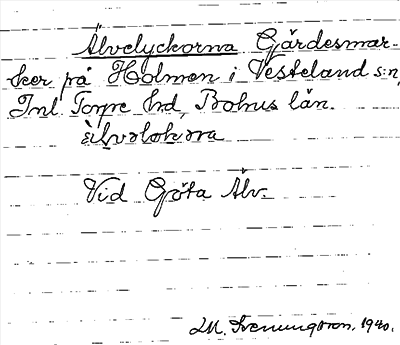 Älvelyckorna Gärdesmar-
ker på Holmen i Vesteland s:n,
Inl. Torpe hd, Bohus län.
Vid Göta Älv.
I.M. Svenungsson. 1940.